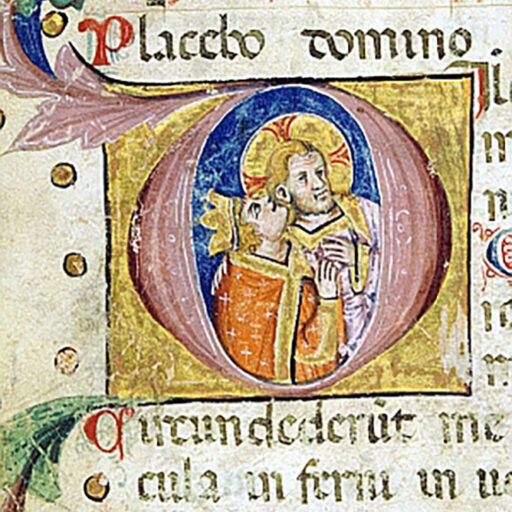 Placebo domino
Circundederūt me
cula in ferni in